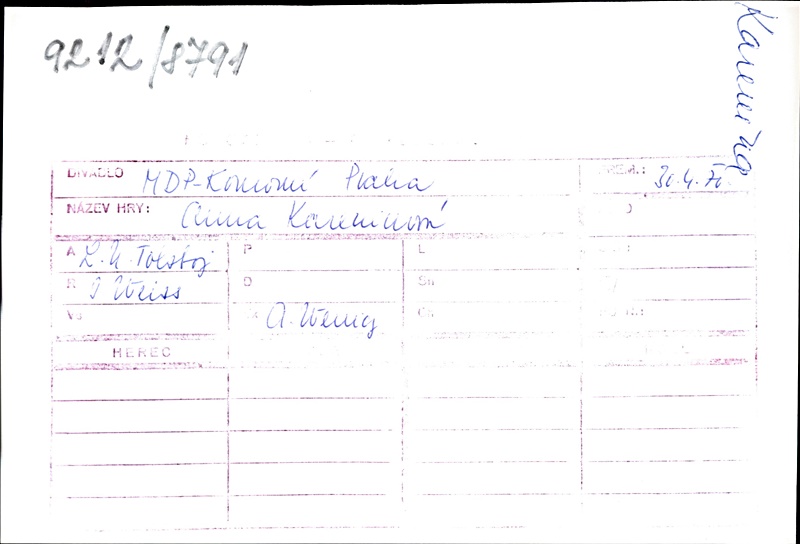 9212/8791
Karenina
DIVADLO MDP-Komorní Praha
NÁZEV HRY: Anna Kareninová
A L. N. Tolstoj P L
R J Weiss D Sn
A. Wenig Ch
HEREC